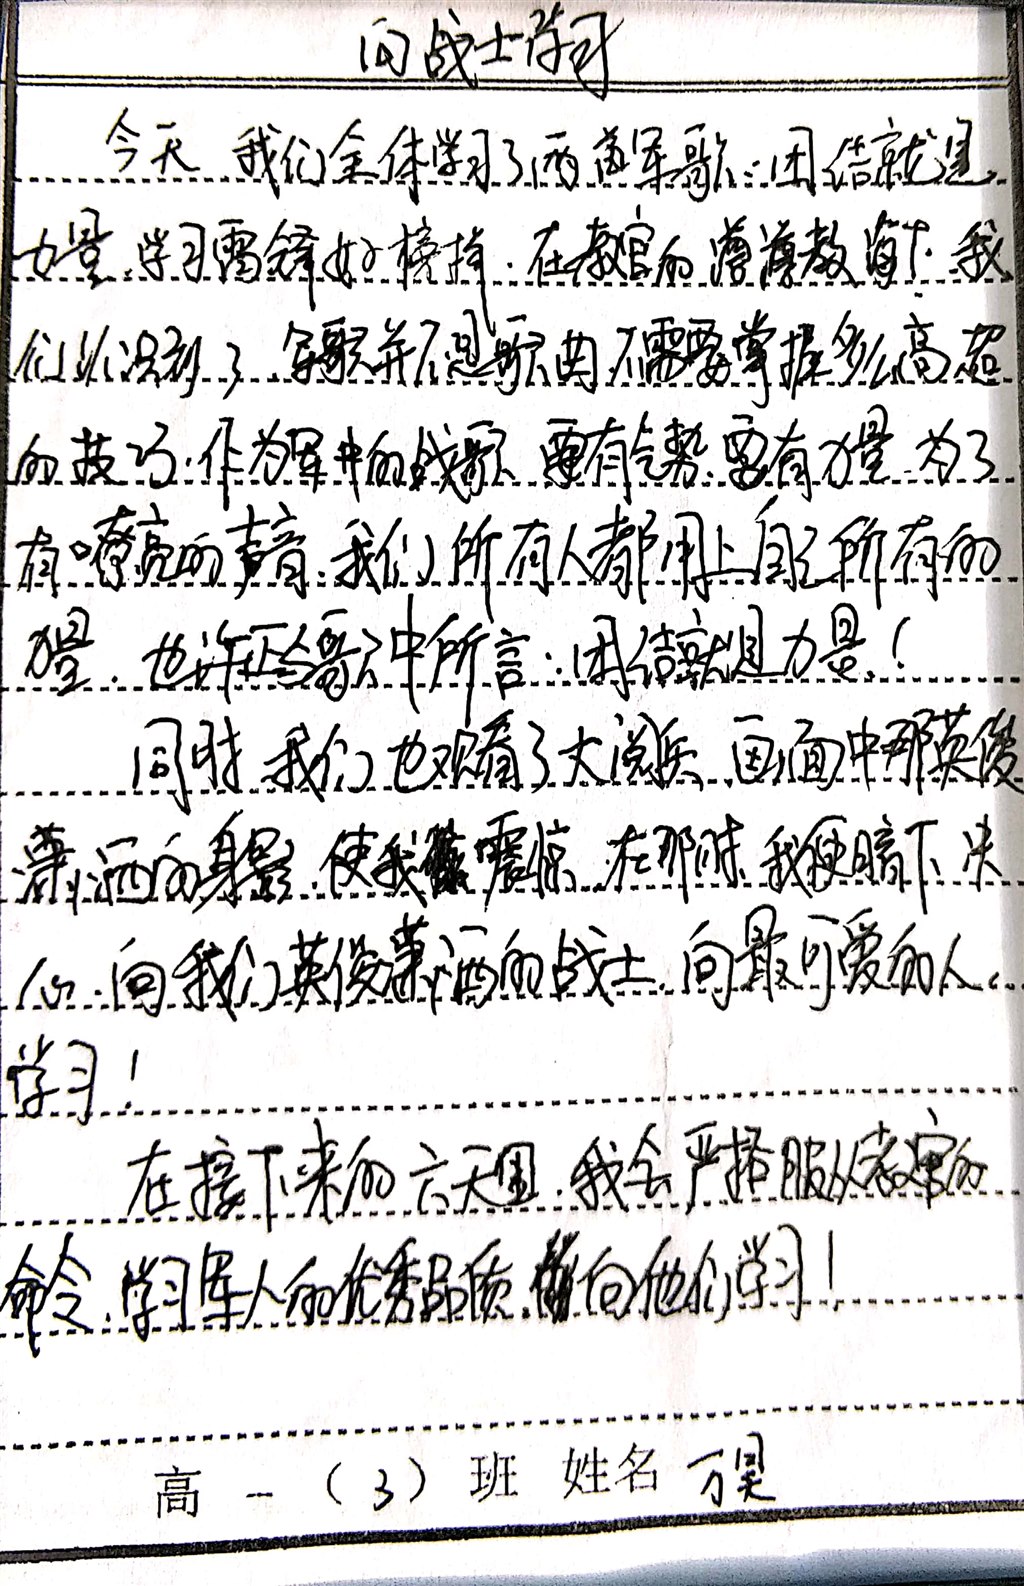 向战士学习
今天,我们全体学习了两首军歌:团结就是
力量,学习雷锋好榜样.在教官的谆谆教诲下,我
们认识到了,军歌并不是歌曲,不需要掌握多么高超
的技巧.作为军中的战歌,要有气势,要有力量.为了
有嘹亮的声音,我们所有人都用上自己所有的
力量.也许正如歌中所言:团结就是力量!
同时,我们也观看了大阅兵,画面中那英俊
潇洒的身影,使我震惊,在那时,我便暗下决
心,向我们英俊潇洒的战士,向最可爱的人,
学习!
在接下来的六天里,我会严格服从教官的
命令,学习军人的优秀品质,向他们学习!
高一(3)班 姓名 万昊